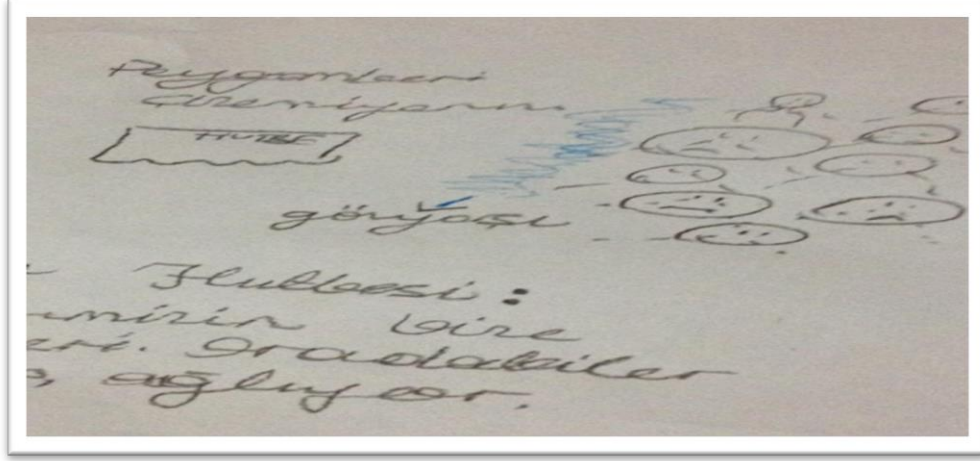 Peygamberi
Çizemiyorum
HUTBE
gözyaşı
Hutbesi :
mizin bize
eri. Oradakiler
ağlıyor.